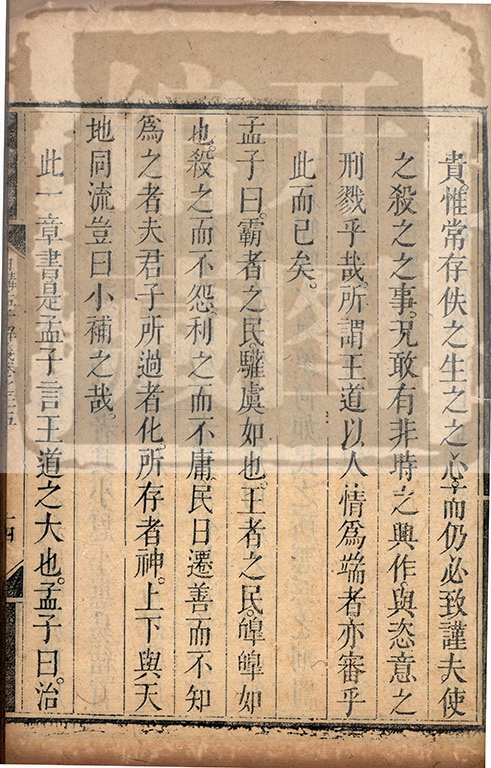 責。惟常存佚之生之之心。而仍必致謹夫使
之殺之之事。況敢有非時之興作與恣意之
刑戮乎哉。所謂王道以人情爲端者亦審乎
此而已矣。
孟子曰。霸者之民。驩虞如也。王者之民。皥皥如
也。殺之而不怨。利之而不庸。民日遷善而不知
爲之者。夫君子所過者化。所存者神。上下與天
地同流。豈曰小補之哉。
此一章書是孟子言王道之大也。孟子曰。治